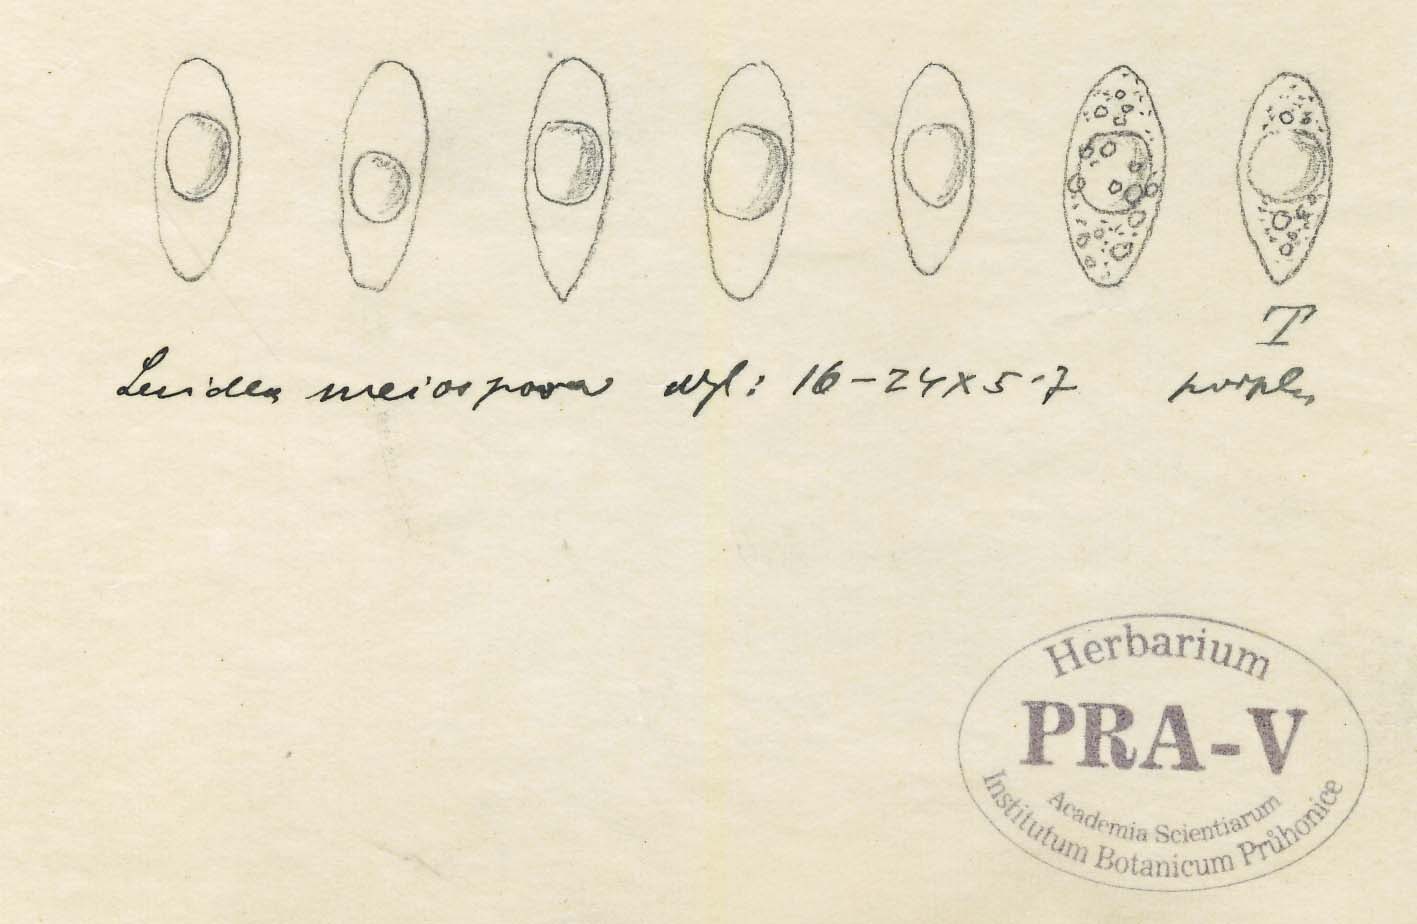 T
Lecidea meiospora Nyl: 16-24x5-7
Herbarium
PRA-V
Academia Scientiarum
Institutum Botanicum Průhonice